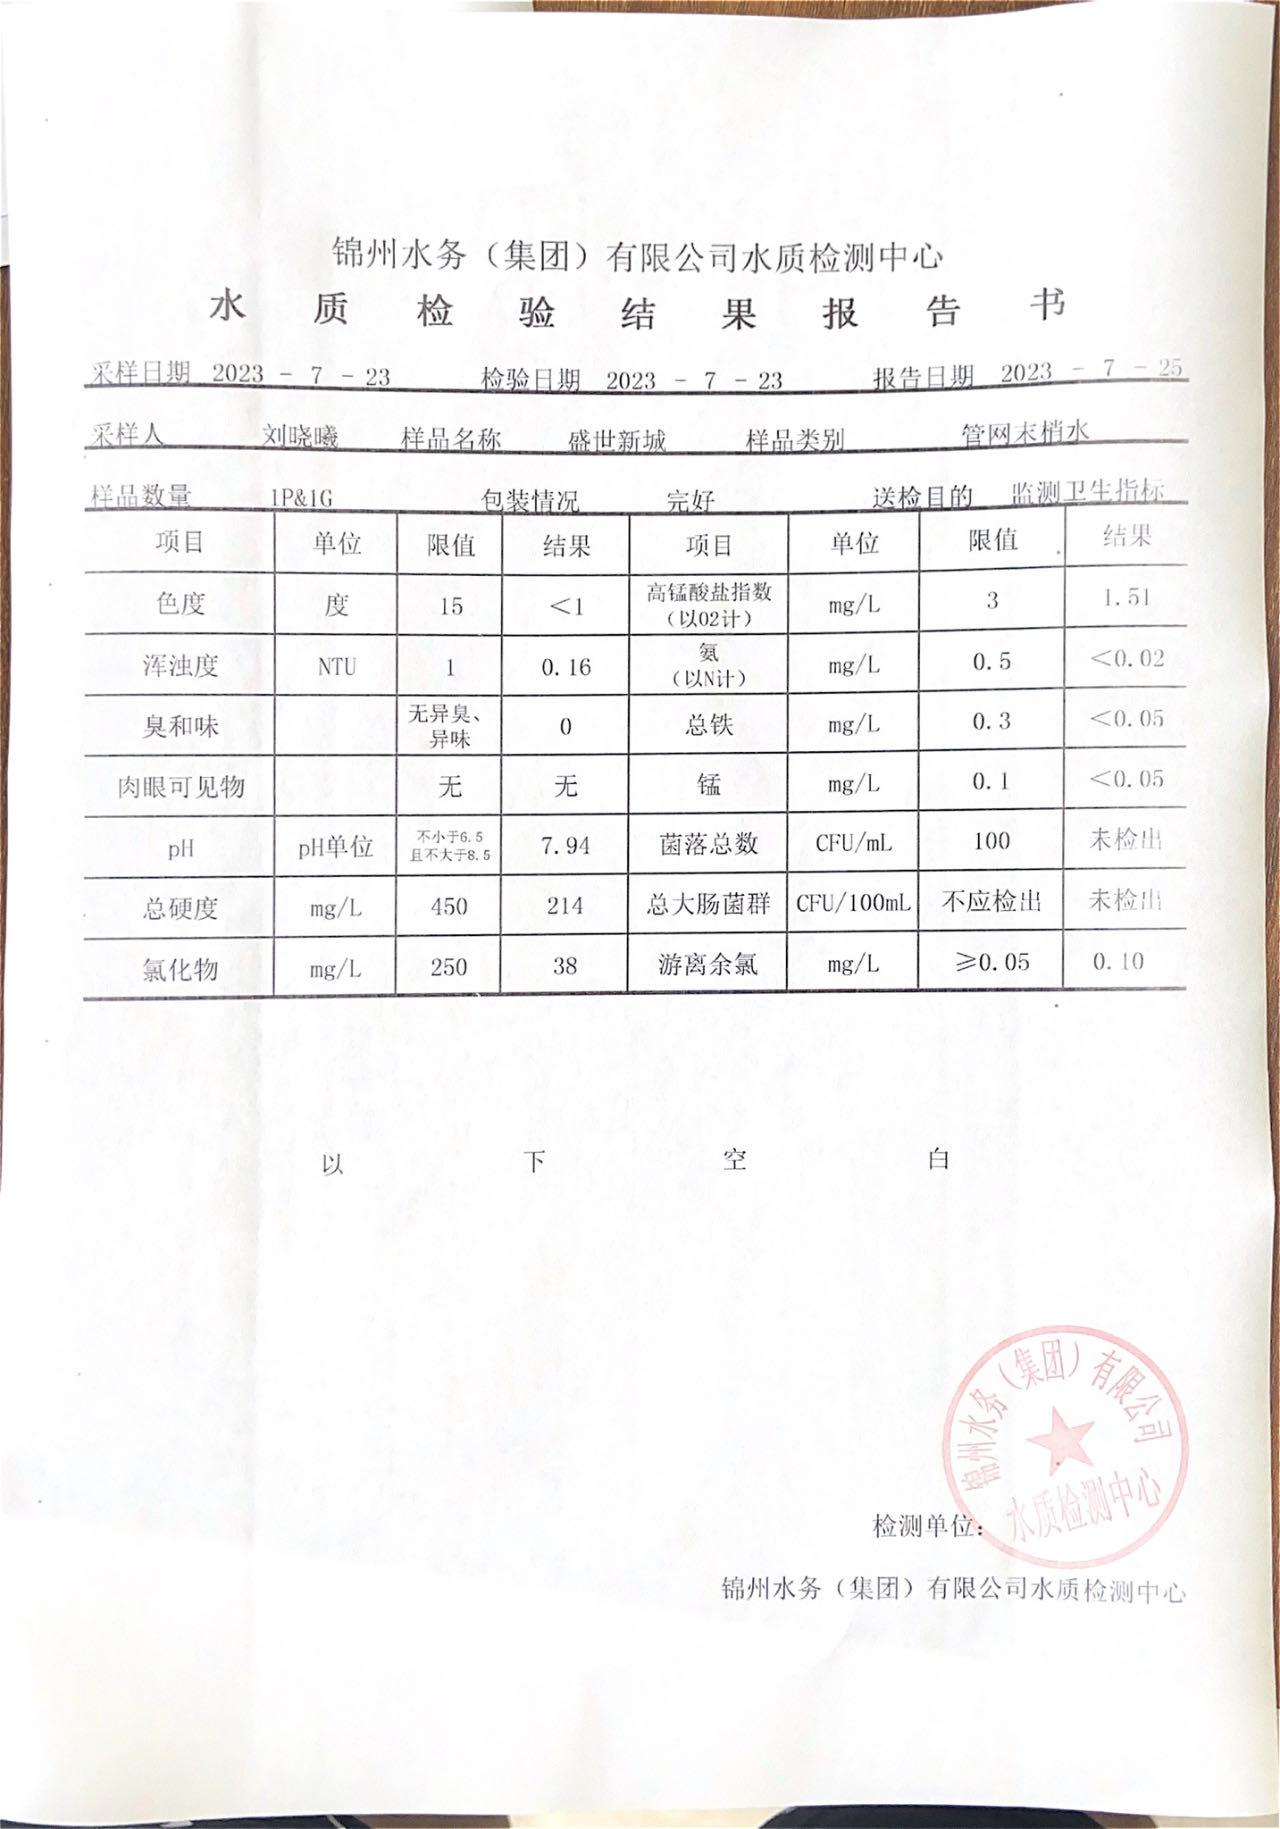 锦州水务（集团）有限公司水质检测中心
水质检验结果报告书
采样日期 2023 - 7 - 23 检验日期 2023 - 7 - 23 报告日期 2023 - 7 - 25
采样人 刘晓曦 样品名称 盛世新城 样品类别 管网末梢水
样品数量 1P&1G 包装情况 完好 送检目的 监测卫生指标
项目 单位 限值 结果 项目 单位 限值 结果
色度 度 15 <1 高锰酸盐指数（以O2计） mg/L 3 1.51
浑浊度 NTU 1 0.16 氨（以N计） mg/L 0.5 <0.02
臭和味 无异臭、异味 0 总铁 mg/L 0.3 <0.05
肉眼可见物 无 无 锰 mg/L 0.1 <0.05
pH pH单位 不小于6.5且不大于8.5 7.94 菌落总数 CFU/mL 100 未检出
总硬度 mg/L 450 214 总大肠菌群 CFU/100mL 不应检出 未检出
氯化物 mg/L 250 38 游离余氯 mg/L ≥0.05 0.10
以下空白
锦州水务（集团）有限公司
水质检测中心
检测单位:
锦州水务（集团）有限公司水质检测中心